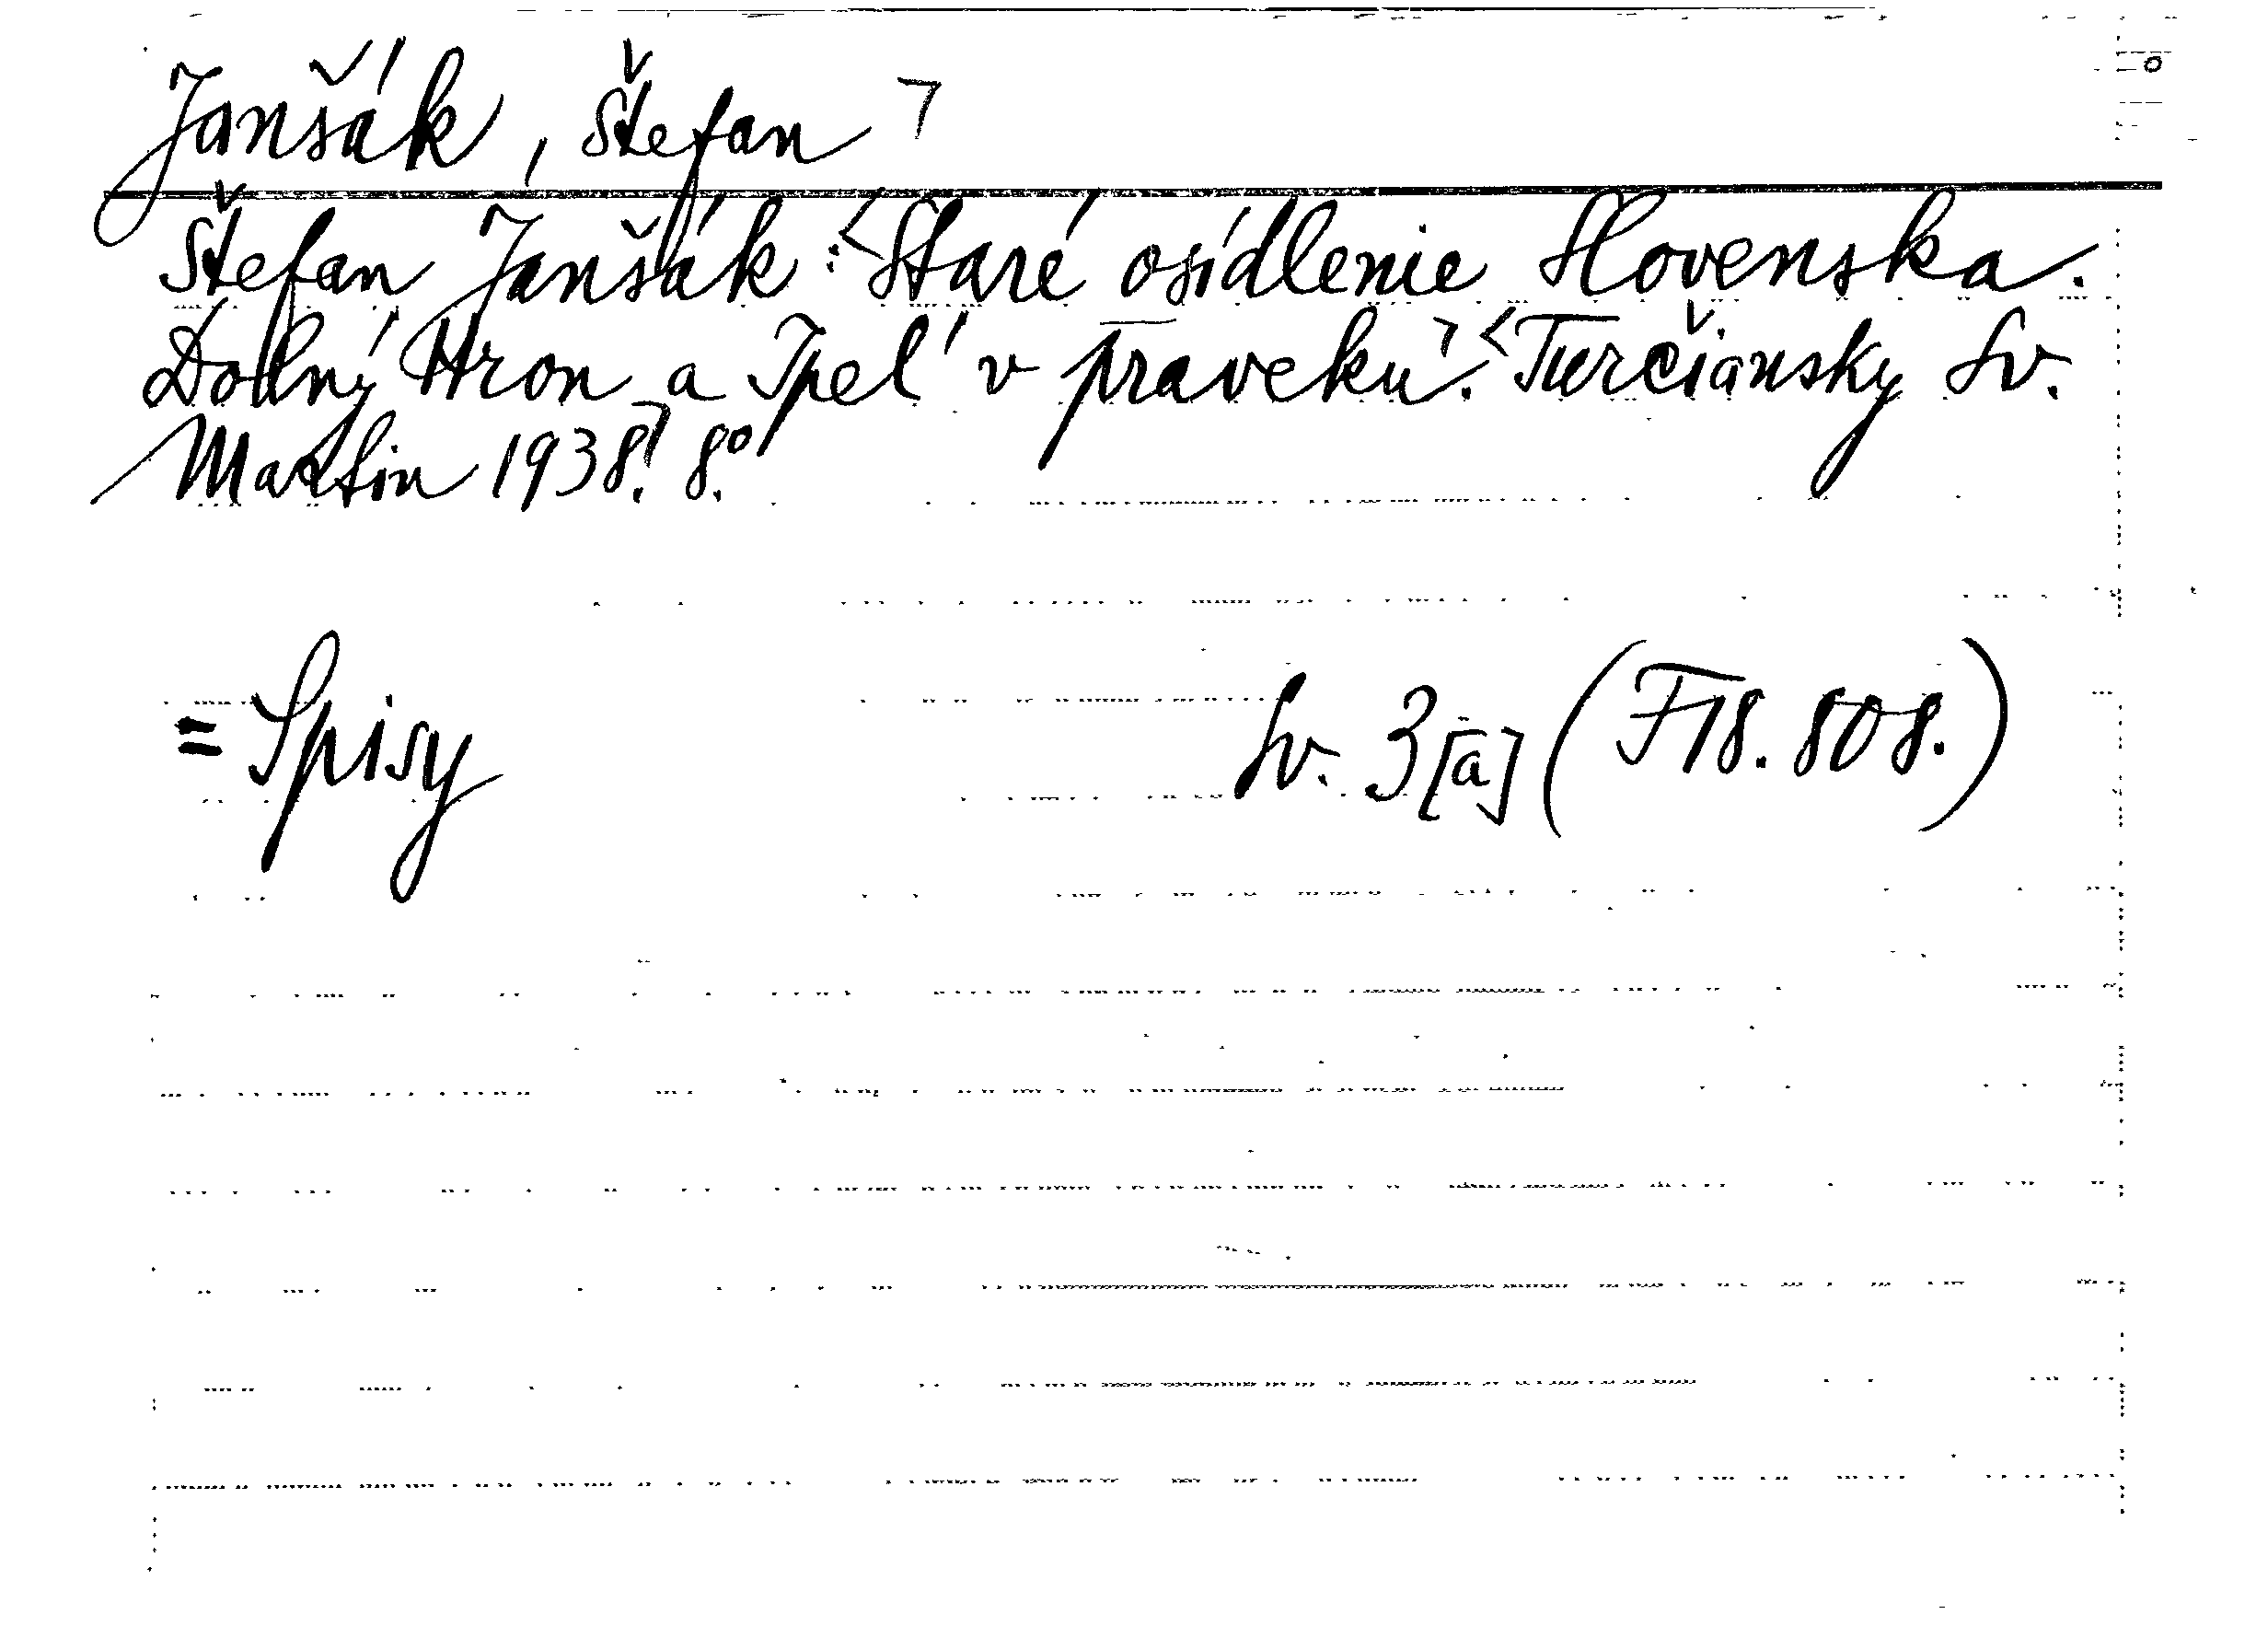 Janšák, Štefan
Štefan Janšák: Staré osídlenie Slovenska.
Dolný Hron a Ipeľ v praveku. Turčiansky Sv.
Martin 1938. 8°.
= Spisy Sv. 3[a] (F18.808.)